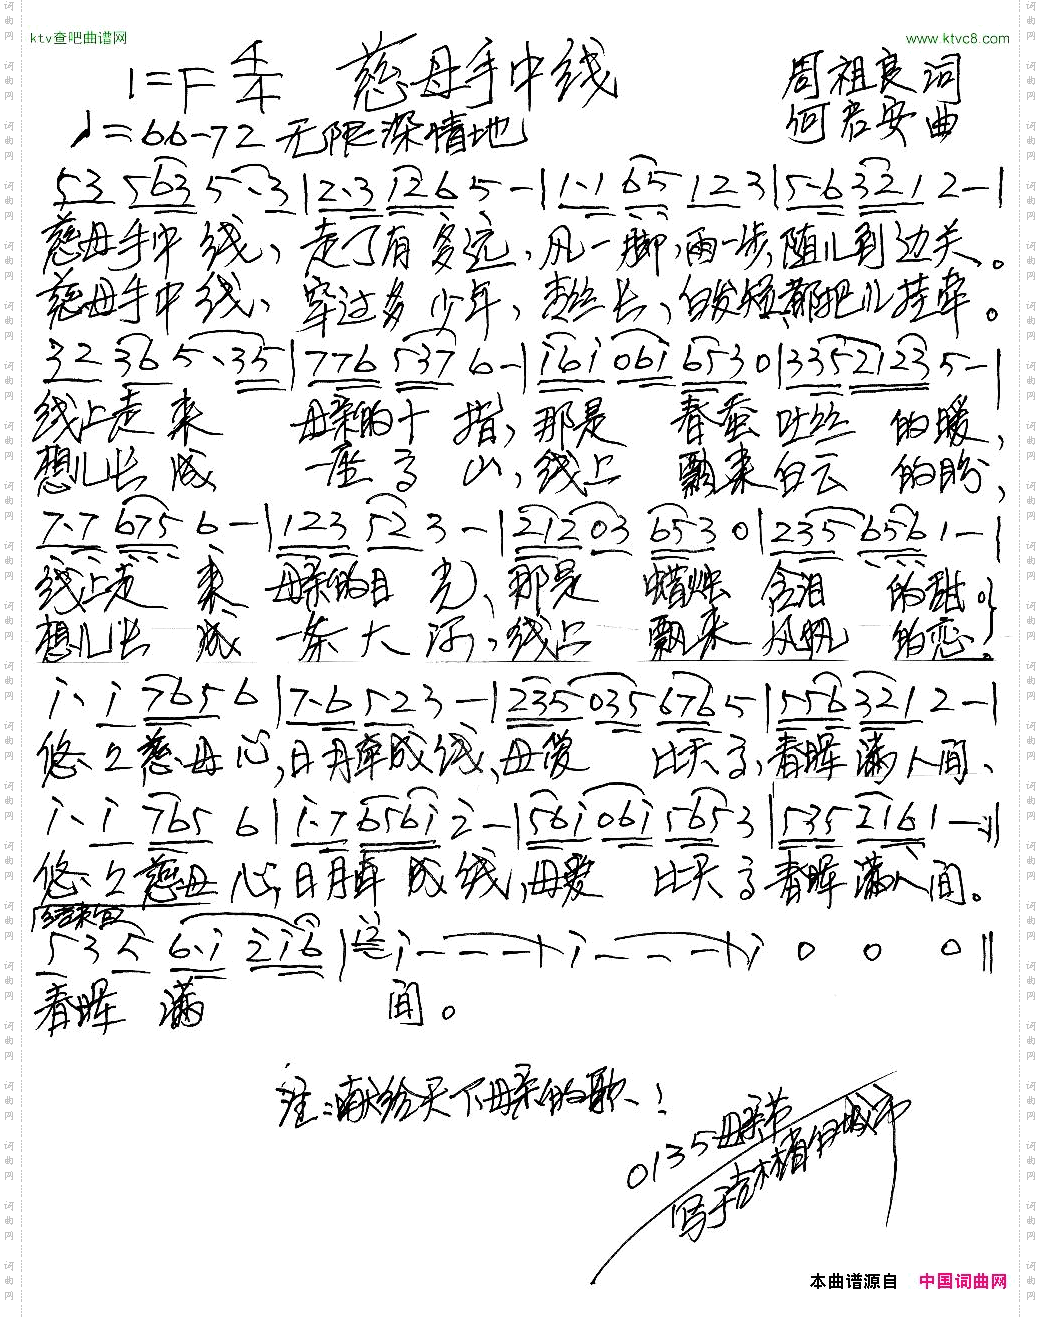 ktv查吧曲谱网 www.ktvc8.com
1=F 4/4 慈母手中线 周祖良 词
♩=66-72 无限深情地 何君安 曲
53 563 5·3 | 2·3 1265 - | 1·1 65 123 | 5·6 3212 - |
慈母手中线，走了有多远，风一脚，雨一步，随儿到边关。
慈母手中线，穿过多少年，长，白发短都把儿挂牵。
32 36 5·35 | 776 5376 - | i6i 06i 6530 | 3352123 5 - |
线上走来 母亲的十指，那是 春蚕吐丝 的暖，
想儿长成 一座高山，线上 飘来白云 的盼，
7·7 6756 - | 123 523 - | 21203 6530 | 235 6561 - |
线上走来 母亲的目光，那是 蜡烛含泪 的甜。
想儿长成 一条大河，线上 飘来风帆 的恋。
i·i 7656 | 7·6 523 - | 235035 6765 | 556 3212 - |
悠久慈母心，日月牵成线，母爱 比天高，春晖满人间、
i·i 765 6 | i·7 656i 2 - | 56i 06i 5653 | 535 2161 - :||
悠久慈母心，日月牵成线，母爱 比天高 春晖满人间。
结束句
535 6·i 2i6 | i - - - | i - - - | i 0 0 0 ||
春晖 满 间。
注：献给天下母亲的歌！
0135母亲节
写于吉林省白城市
本曲谱源自 中国词曲网